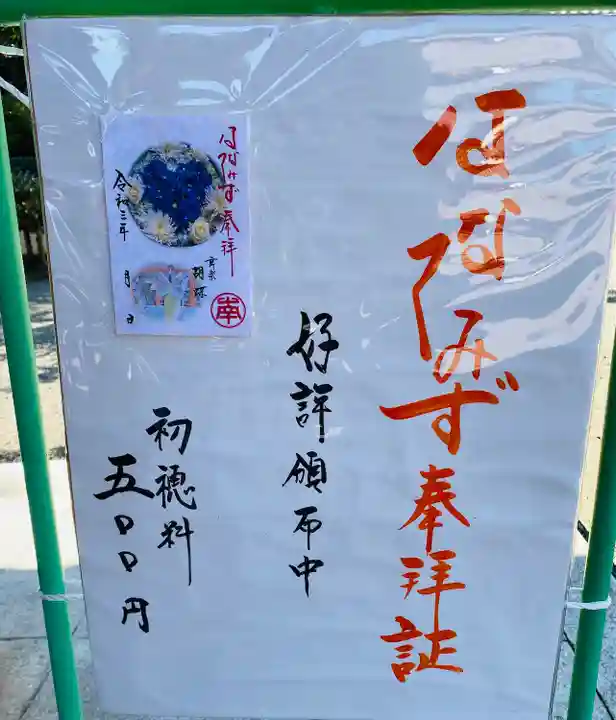 はなてみず奉拝証
好評頒布中
初穂料
五〇〇円
はなてみず奉拝
令和三年 月 日